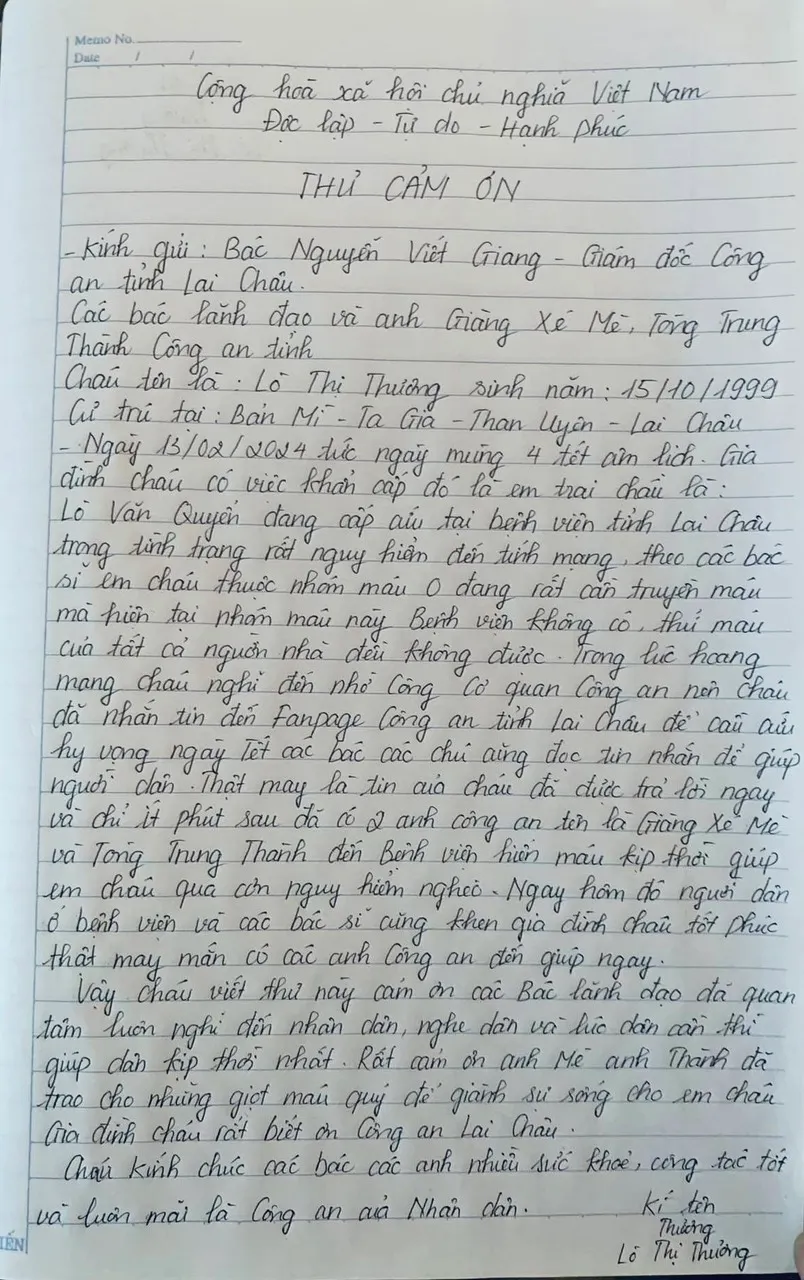 Memo No.
Date / /
Cộng hoà xã hội chủ nghĩa Việt Nam
Độc lập - Tự do - Hạnh phúc
THƯ CẢM ƠN
- Kính gửi : Bác Nguyễn Viết Giang - Giám đốc Công
an tỉnh Lai Châu.
Các bác lãnh đạo và anh Giàng Xé Mè, Tòng Trung
Thành Công an tỉnh
Cháu tên là : Lò Thị Thương sinh năm : 15/10/1999
Cư trú tại : Bản Mì - Ta Gia - Than Uyên - Lai Châu
- Ngày 13/02/2024 tức ngày mùng 4 tết âm lịch. Gia
đình cháu có việc khẩn cấp đó là em trai cháu là :
Lò Văn Quyền đang cấp cứu tại bệnh viện tỉnh Lai Châu
trong tình trạng rất nguy hiểm đến tính mạng, theo các bác
sĩ em cháu thuộc nhóm máu O đang rất cần truyền máu
mà hiện tại nhóm máu này Bệnh viện không có, thử máu
của tất cả người nhà đều không được. Trong lúc hoang
mang cháu nghĩ đến nhờ Công Cơ quan Công an nên cháu
đã nhắn tin đến Fanpage Công an tỉnh Lai Châu để cầu cứu
hy vọng ngày Tết các bác các chú cũng đọc tin nhắn để giúp
người dân. Thật may là tin của cháu đã được trả lời ngay
và chỉ ít phút sau đã có 2 anh công an tên là Giàng Xé Mè
và Tòng Trung Thành đến Bệnh viện hiến máu kịp thời giúp
em cháu qua cơn nguy hiểm nghèo. Ngay hôm đó người dân
ở bệnh viện và các bác sĩ cũng khen gia đình cháu tốt phúc
thật may mắn có các anh Công an đến giúp ngay.
Vậy cháu viết thư này cảm ơn các Bác lãnh đạo đã quan
tâm luôn nghĩ đến nhân dân, nghe dân và lúc dân cần thì
giúp dân kịp thời nhất. Rất cảm ơn anh Mè anh Thành đã
trao cho những giọt máu quý để giành sự sống cho em cháu
Gia đình cháu rất biết ơn Công an Lai Châu.
Cháu kính chúc các bác các anh nhiều sức khoẻ, công tác tốt
và luôn mãi là Công an của Nhân dân.
Kí tên
Thương
Lò Thị Thương